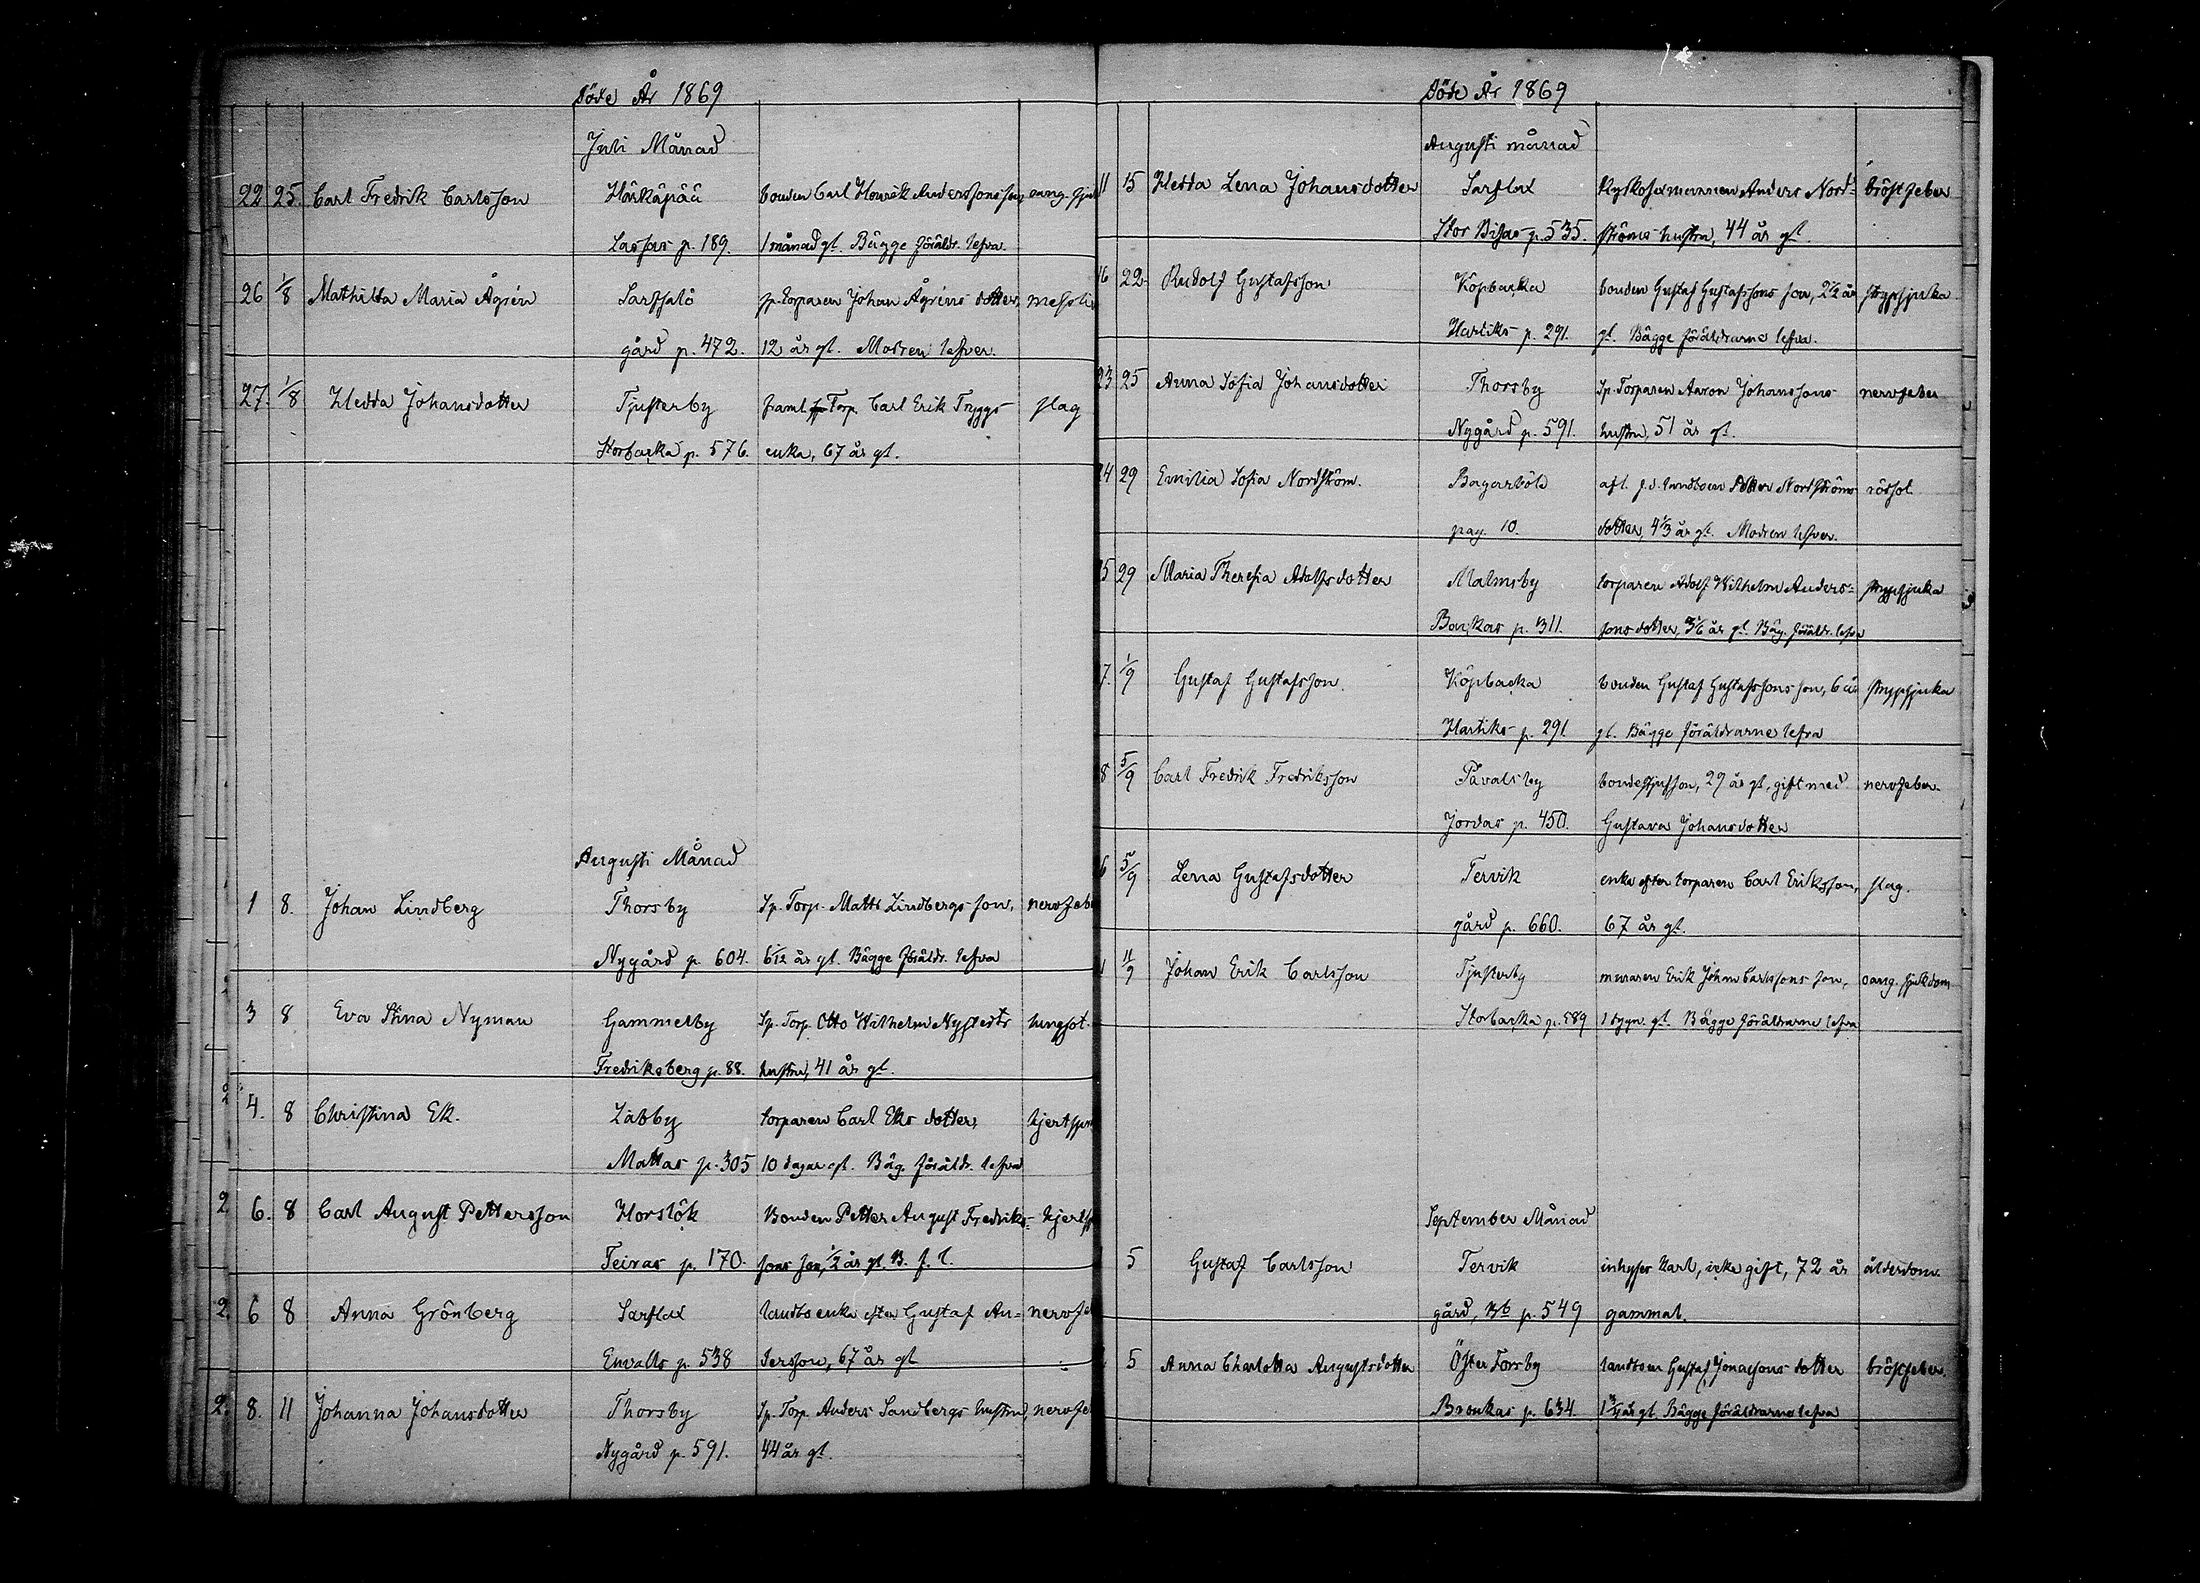 Döde År 1869
Juli Månad
22 25. Carl Fredrik Carlsson Härkäpää bonden Carl Henrik Anderssons son,
Lassas p. 189. 1 månad gl. Bägge föräldr. lefva.
26 1/8 Mathilda Maria Ågrén Sarfsalö sp. torparen Johan Ågréns dotter,
gård p. 472. 12 år gl. Modren lefver.
27. 1/8 Hedda Johansdotter Tjusterby framl. Torp. Carl Erik Tryggs slag
Storbacka p. 576. enka, 67 år gl.
Augusti Månad
1 8. Johan Lindberg Thorsby Sp. Torp. Matts Lindbergs son, nervfeb
Nygård p. 604. 6/12 år gl. Bägge föräldr. lefva
3 8 Eva Stina Nyman Gammelby Sp. Torp. Otto Wilhelm Nystedts lungsot.
Fredriksberg p. 88. hustru, 41 år gl.
4. 8 Christina Ek. Labby torparen Carl Eks dotter,
Mattas p. 305 10 dagar gl. Bäg. föräldr. lefva
6. 8 Carl August Pettersson Horslök Bonden Petter August Fredriks-
Teiras p. 170. sons son, 1/2 år gl. B. f. l.
6 8 Anna Grönberg Sarflax landbo enka efter Gustaf An- nervfe
Envalls p. 538 dersson, 67 år gl
8. 11 Johanna Johansdotter Thorsby Sp. Torp. Anders Sandbergs hustru, nervfe
Nygård p. 591. 44 år gl.
Döde År 1869
Augusti månad
11 15 Hedda Lena Johansdotter Sarflax Anders Nord- bröstfeber
Stor Bisas p. 535. ströms hustru, 44 år gl.
16 22. Rudolf Gustafsson Köpbacka bonden Gustaf Gustafssons son, 2 1/2 år strypsjuka
Hartiks p. 291. gl. Bägge föräldrarne lefva.
23 25 Anna Sofia Johansdotter Thorsby Sp. Torparen Aaron Johanssons nervfeber
Nygård p. 591. hustru, 51 år gl.
24 29 Emilia Sofia Nordström. Bagarböle Nordströms rödsot
pag. 10. dotter, 4 1/3 år gl. Modren lefver.
25 29 Maria Theresia Adolfsdotter Malmsby torparen Adolf Wilhelm Anders- strypsjuka
Bonkas p. 311. sons dotter, år gl. Bäg. föräldr. lefva
1/9 Gustaf Gustafsson. Köpbacka bonden Gustaf Gustafssons son, 6 år strypsjuka
Hartiks p. 291 gl. Bägge föräldrarne lefva
5/9 Carl Fredrik Fredriksson Påvalsby bondestjufson, 29 år gl, gift med nervfeber.
Jordas p. 450. Gustava Johansdotter
5/9 Lena Gustafsdotter Tervik enka efter torparen Carl Eriksson, slag.
gård p. 660. 67 år gl.
11/9 Johan Erik Carlsson Tjusterby muraren Erik Johan Carlssons son, oang. sjukdom
Storbacka p. 589 1 dygn. gl. Bägge föräldrarne lefva
September Månad
5 Gustaf Carlsson Tervik inhyses karl, icke gift, 72 år ålderdom.
gård, Bb p. 549 gammal.
5 Anna Charlotta Augustsdotter Öster Torsby landbon Gustaf Jonassons dotter bröstfeber.
Bronkas p. 634. 1 3/4 år gl. Bägge föräldrarne lefva